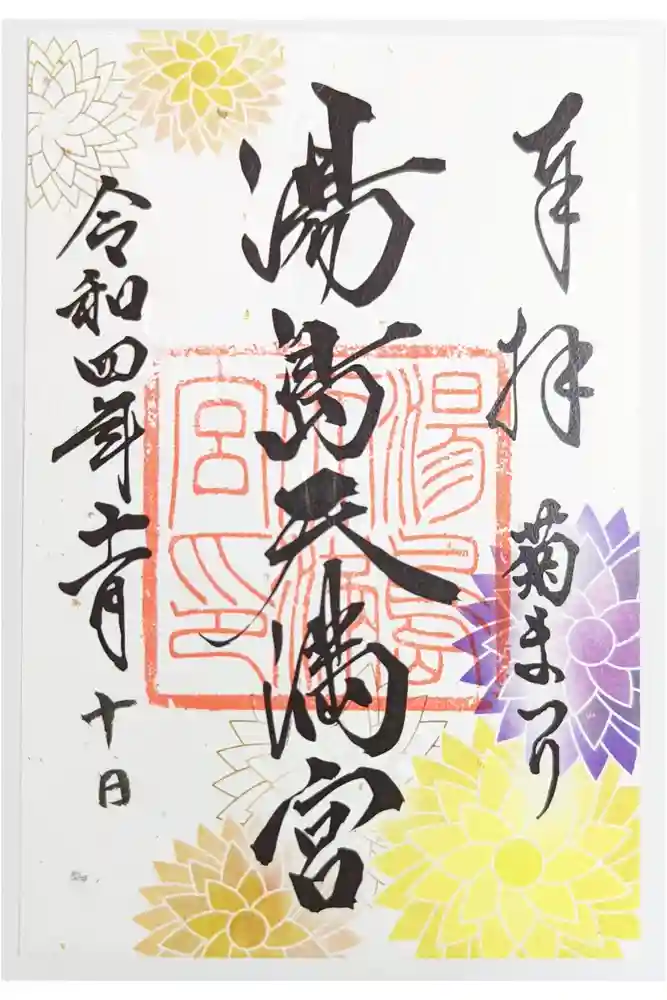 奉拝 菊まつり
湯島天満宮
令和四年十一月十日
湯島天満宮印